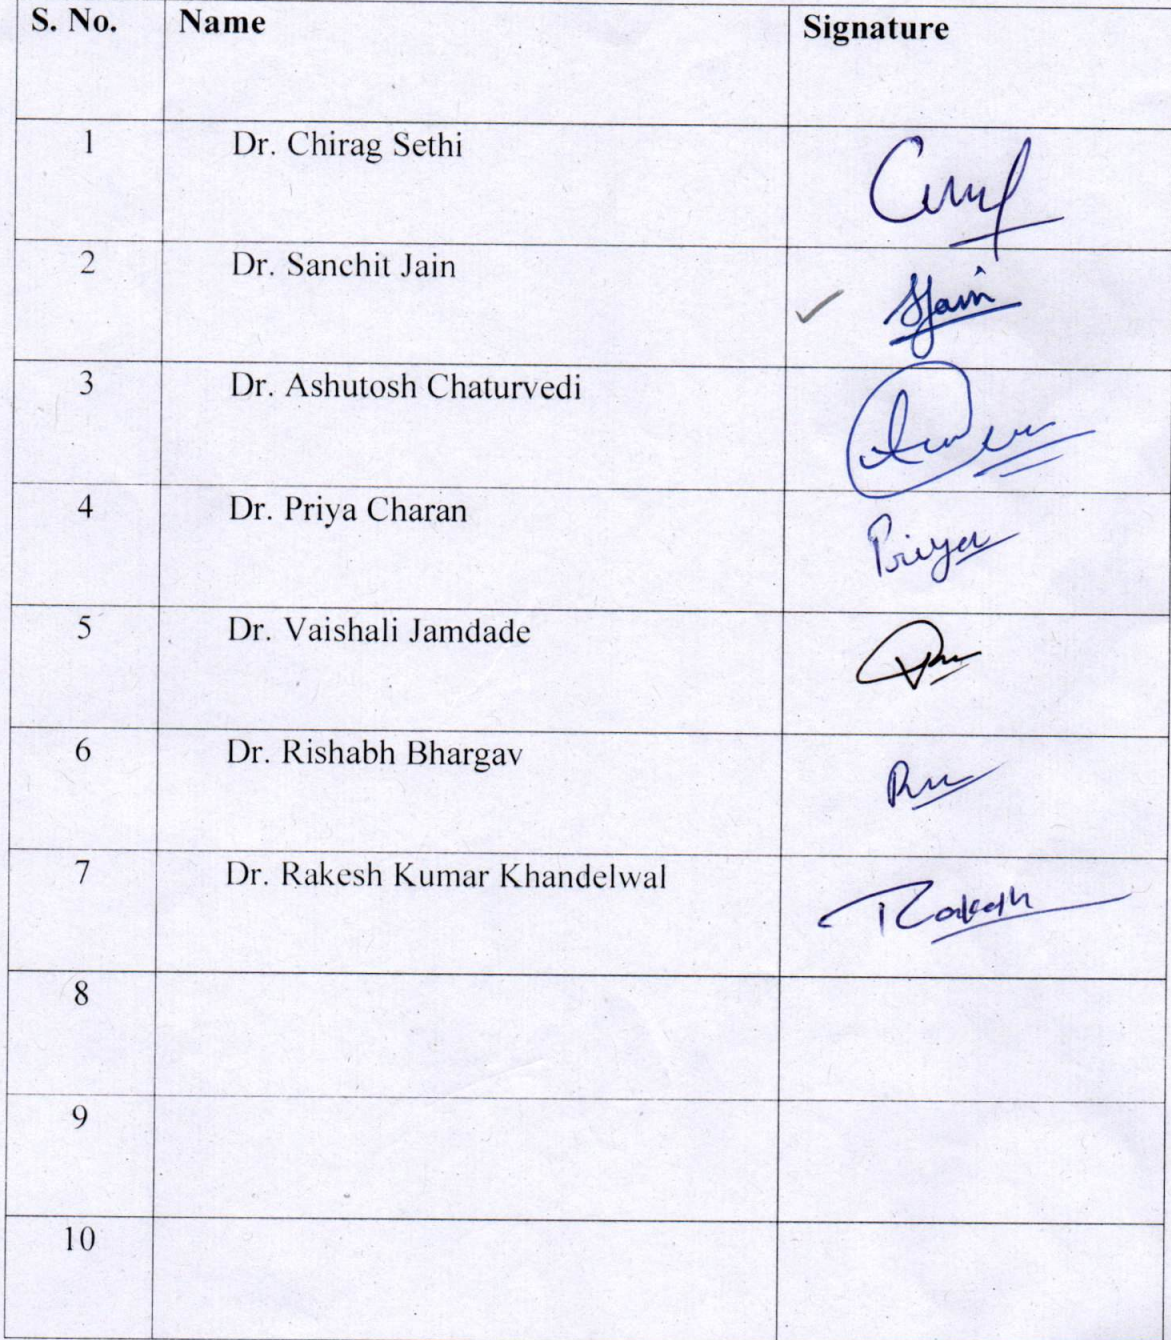 S. No. Name Signature
1 Dr. Chirag Sethi
2 Dr. Sanchit Jain SJain
3 Dr. Ashutosh Chaturvedi
4 Dr. Priya Charan Priya
5 Dr. Vaishali Jamdade
6 Dr. Rishabh Bhargav
7 Dr. Rakesh Kumar Khandelwal Rakesh
8
9
10